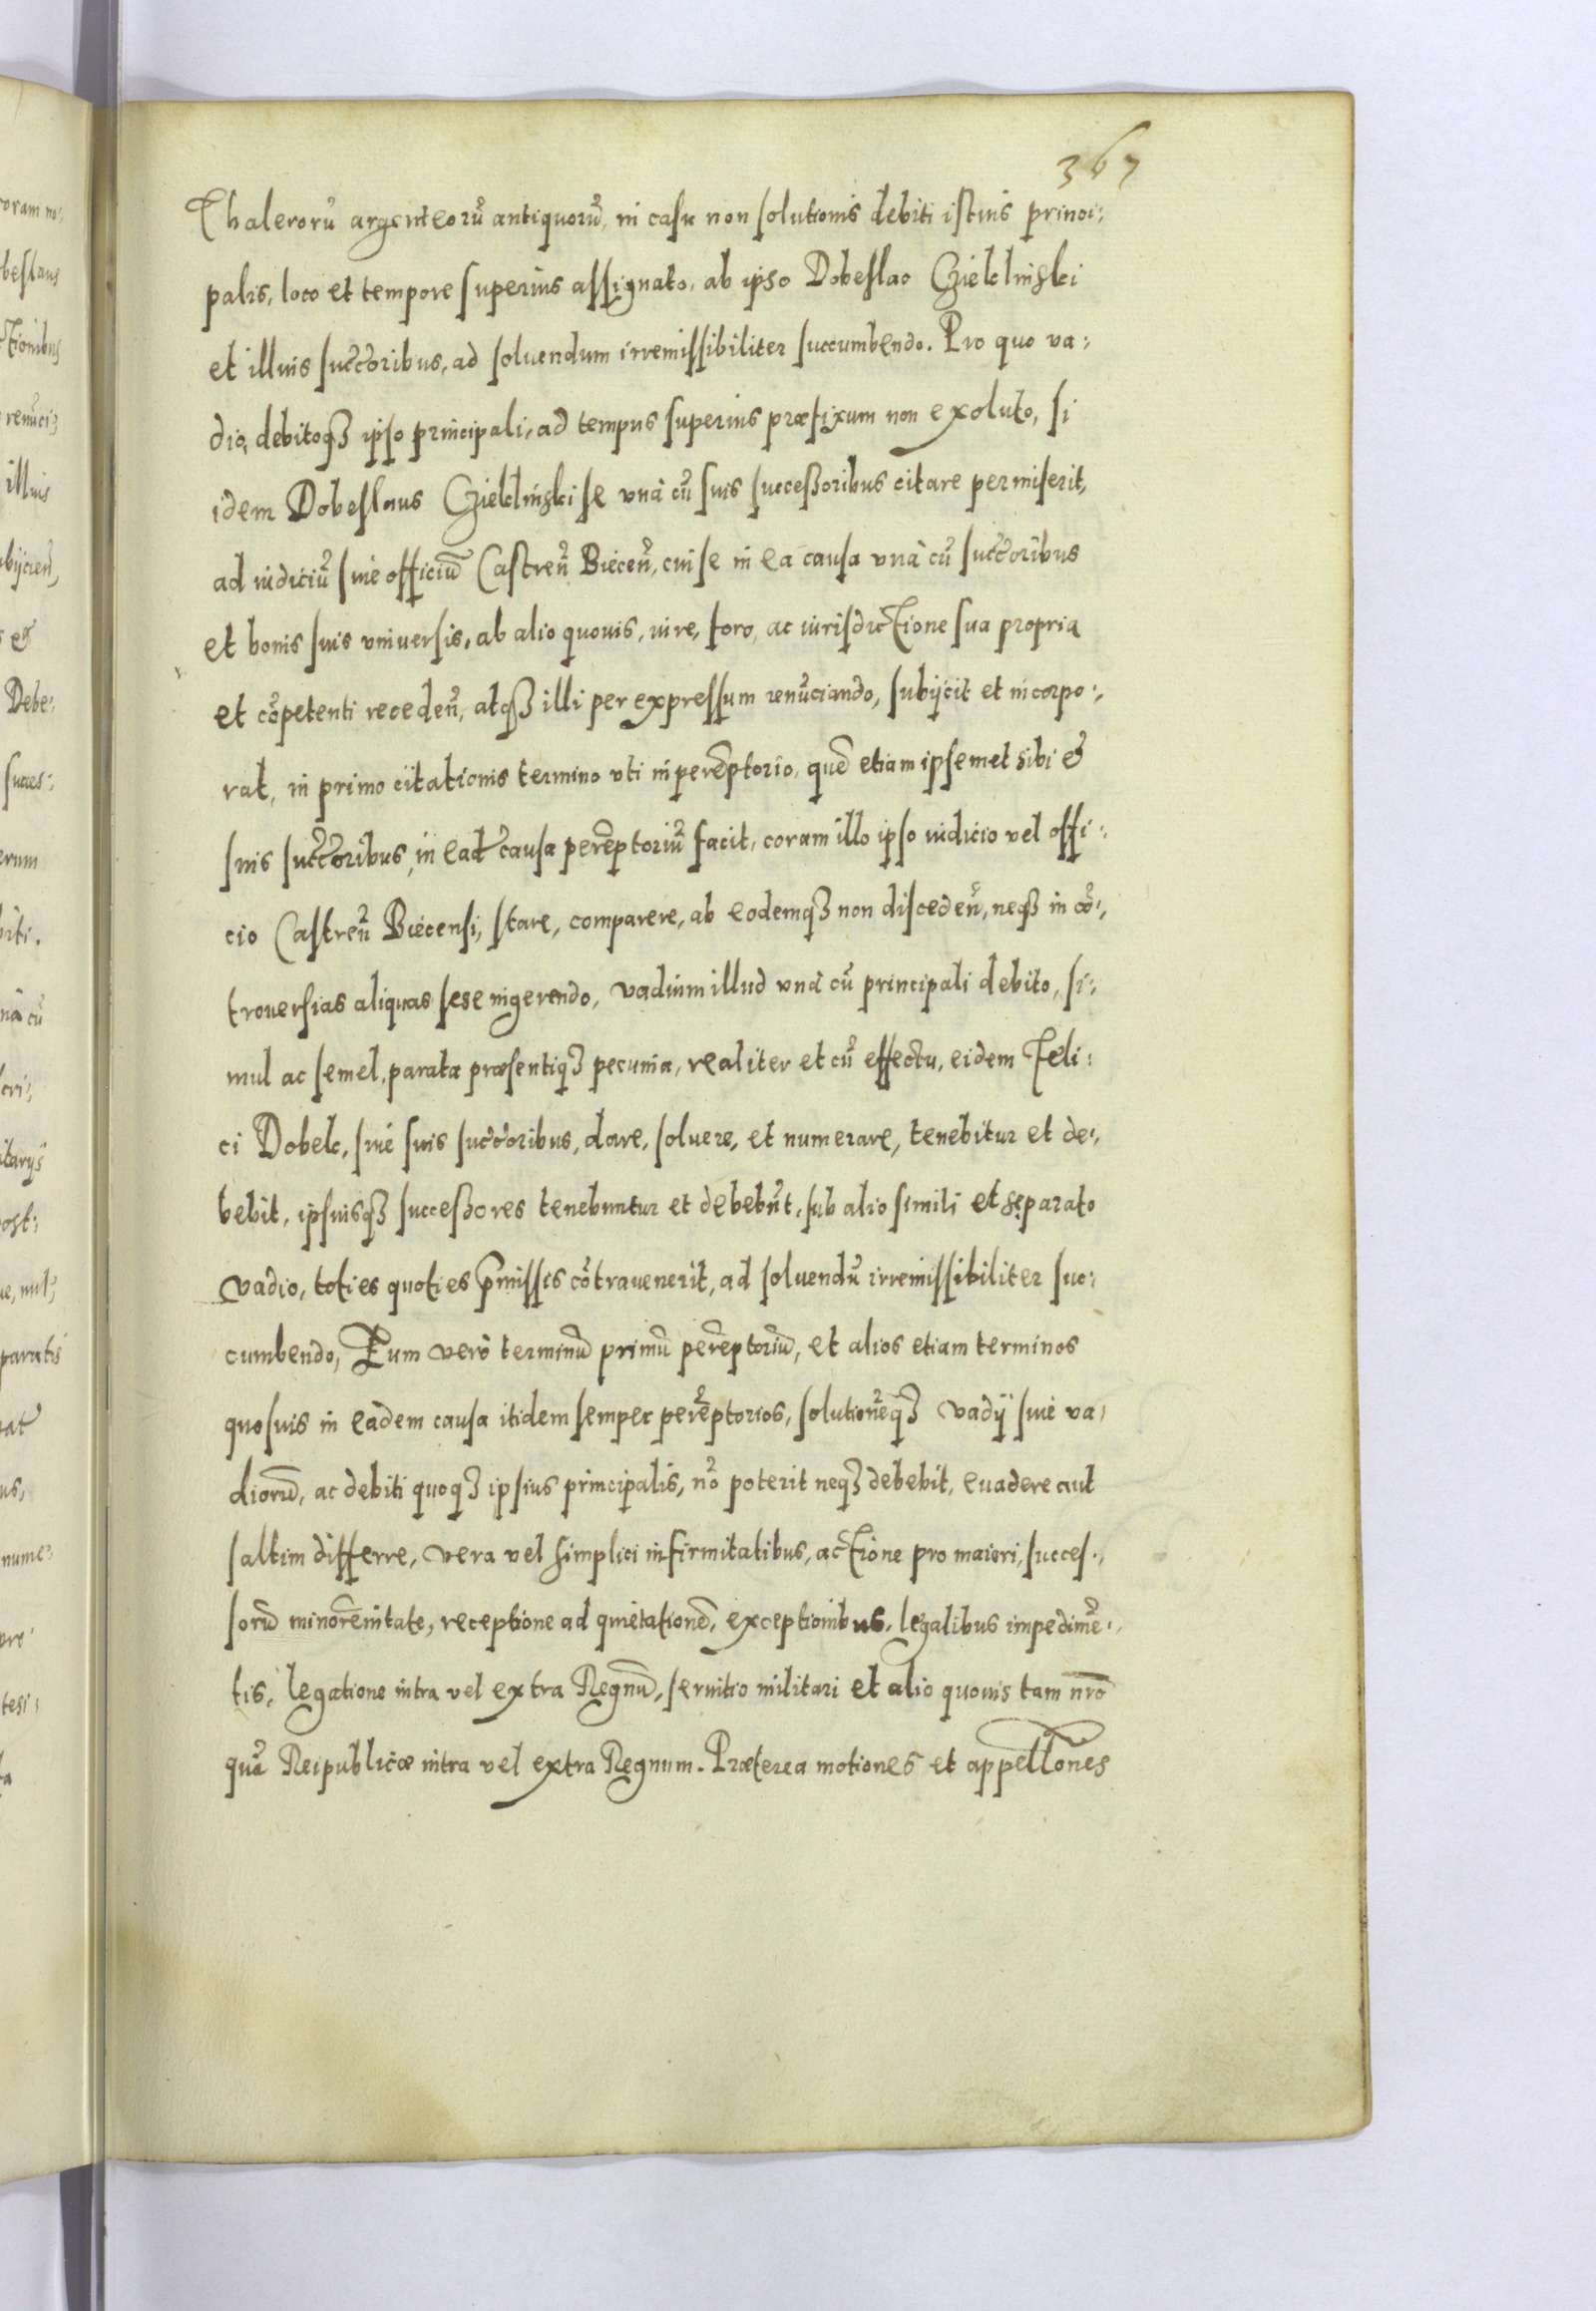 367
Thalerorũ argenteorũ antiquorũ, in casu non solutionis debiti istius princi:
palis, loco et tempore superius assignato, ab ipso Dobeslao Czieklinski
et illius succoribus, ad soluendum irremissibiliter succumbendo. Pro quo va:
dio, debitoqʒ ipso principali, ad tempus superius præfixum non exoluto, si
idem Dobeslaus Czieklinski se vnà cũ suis successoribus citare permiserit,
ad iudiciũ siue officiũ Castreñ Bieceñ, cui se in ea causa vnà cũ succoribus
et bonis suis vniuersis, ab alio quouis, iure, foro, ac iurisdictione sua propria
et cõpetenti recedeñ, atqʒ illi per expressum renũciando, subijcit et incorpo:
rat, in primo citationis termino vti in perẽptorio, quẽ etiam ipsemet sibi et
suis succoribus, in ead causa perẽptoriũ facit, coram illo ipso iudicio vel offi:
cio Castreñ Biecensi, stare, comparere, ab eodemqʒ non discedeñ, neqʒ in cõ:
trouersias aliquas sese ingerendo, vadium illud vnà cũ principali debito, si:
mul ac semel, parata præsentiqʒ pecunia, realiter et cũ effectu, eidem Feli:
ci Dobek, siue suis succoribus, dare, soluere, et numerare, tenebitur et de:
bebit, ipsiusqʒ successores tenebuntur et debebũt, sub alio simili et separato
vadio, toties quoties p̃missis cõtrauenerit, ad soluendũ irremissibiliter suc:
cumbendo, Eum verò terminũ primũ perẽptoriũ, et alios etiam terminos
quosuis in eadem causa itidem semper perẽptorios, solutionẽqʒ vadij siue va:
diorũ, ac debiti quoqʒ ipsius principalis, nõ poterit neqʒ debebit, euadere aut
saltim differre, vera vel simplici infirmitatibus, actione pro maiori, succes:
sorũ minorẽnitate, receptione ad quietationẽ, exceptionibus, legalibus impedimẽ:
tis, legatione intra vel extra Regnũ, seruitio militari et alio quouis tam nr̃o
quã Reipublicæ intra vel extra Regnum. Præterea motiones et appellones